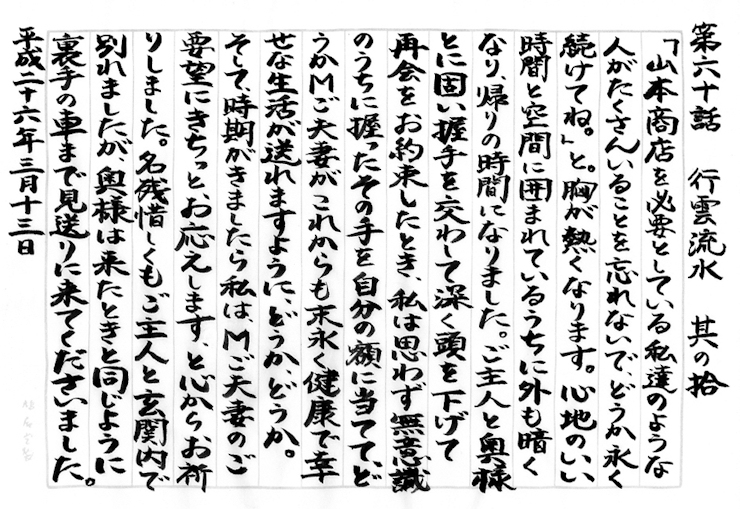 第六十話 行雲流水 其の拾
「山本商店を必要としている私達のような
人がたくさんいることを忘れないで、どうか永く
続けてね。」と。胸が熱くなります。心地のいい
時間と空間に囲まれているうちに外も暗く
なり、帰りの時間になりました。ご主人と奥様
とに固い握手を交わして深く頭を下げて
再会をお約束したとき、私は思わず無意識
のうちに握ったその手を自分の額に当てて、ど
うかMご夫妻がこれからも末永く健康で幸
せな生活が送れますように、どうか、どうか。
そして、時期がきましたら私は、Mご夫妻のご
要望にきちっと、お応えします、と心からお祈
りしました。名残惜しくもご主人と玄関内で
別れましたが、奥様は来たときと同じように
裏手の車まで見送りに来てくださいました。
平成二十六年三月十三日